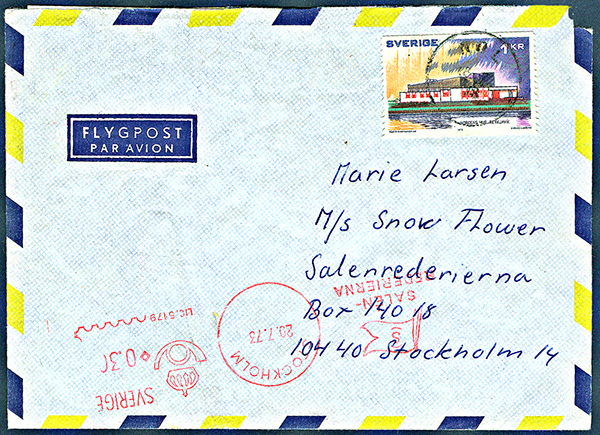 SVERIGE 1 KR
NORDENS HUS · REYKJAVIK
FLYGPOST
PAR AVION
Marie Larsen
M/s Snow Flower
Salenrederierna
Box 140 18
104 40 Stockholm 14
SALEN-
REDERIERNA
S
STOCKHOLM
20.7.73
LIC. 5179
0.30
SVERIGE